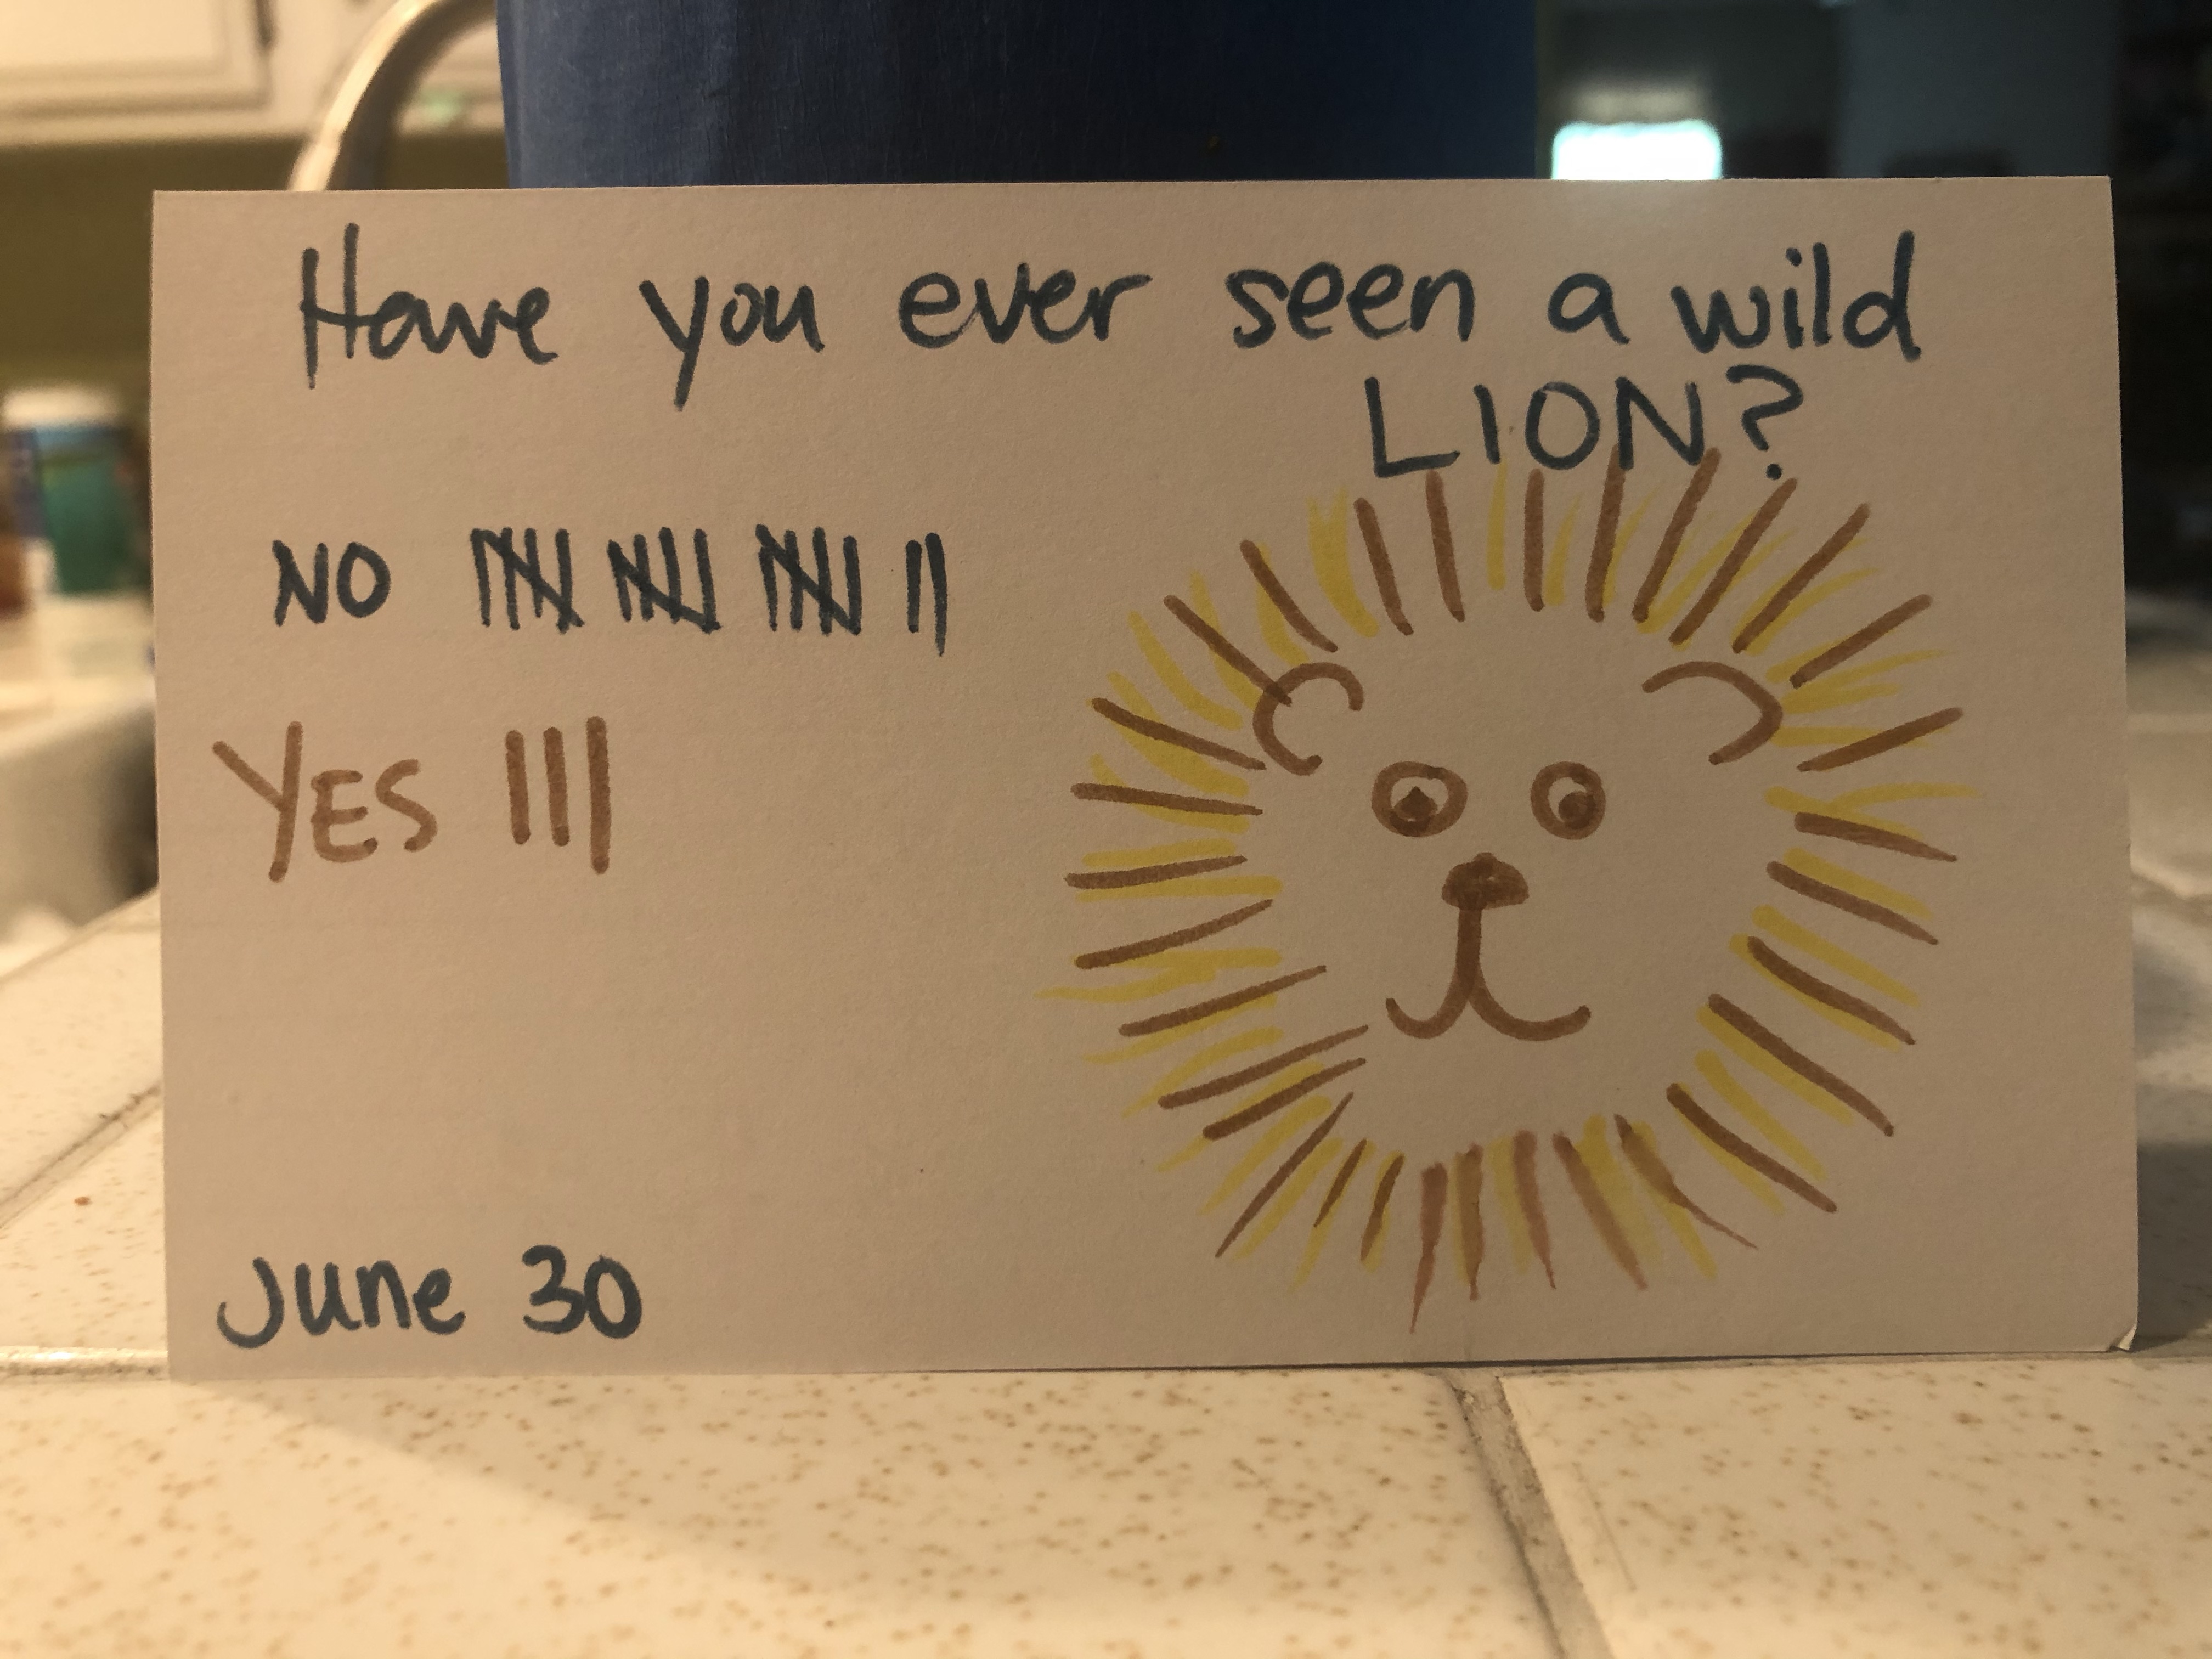 Have you ever seen a wild
LION?
NO 卌 卌 卌 ||
YES |||
June 30